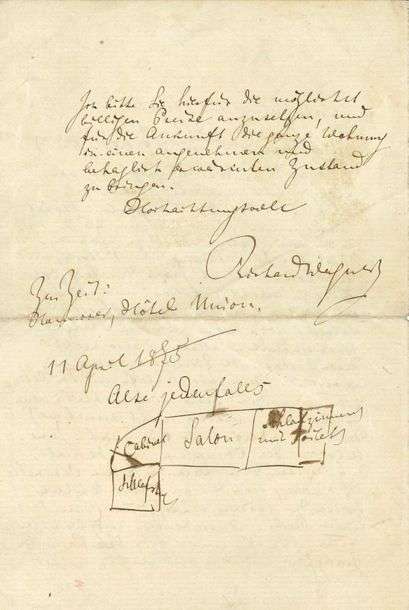 Ich bitte Sie hiefür die möglichst
billigen Preise anzusetzen, und
für die Ankunft die ganze Wohnung
in einen angenehmen und
behaglich erwärmten Zustand
zu bringen.
Hochachtungsvoll
Richard Wagner
Zur Zeit:
Hannover, Hôtel Union.
11 April 1875
Also jedenfalls
Cabinet
Salon
Schlafzimmer
und Toilette